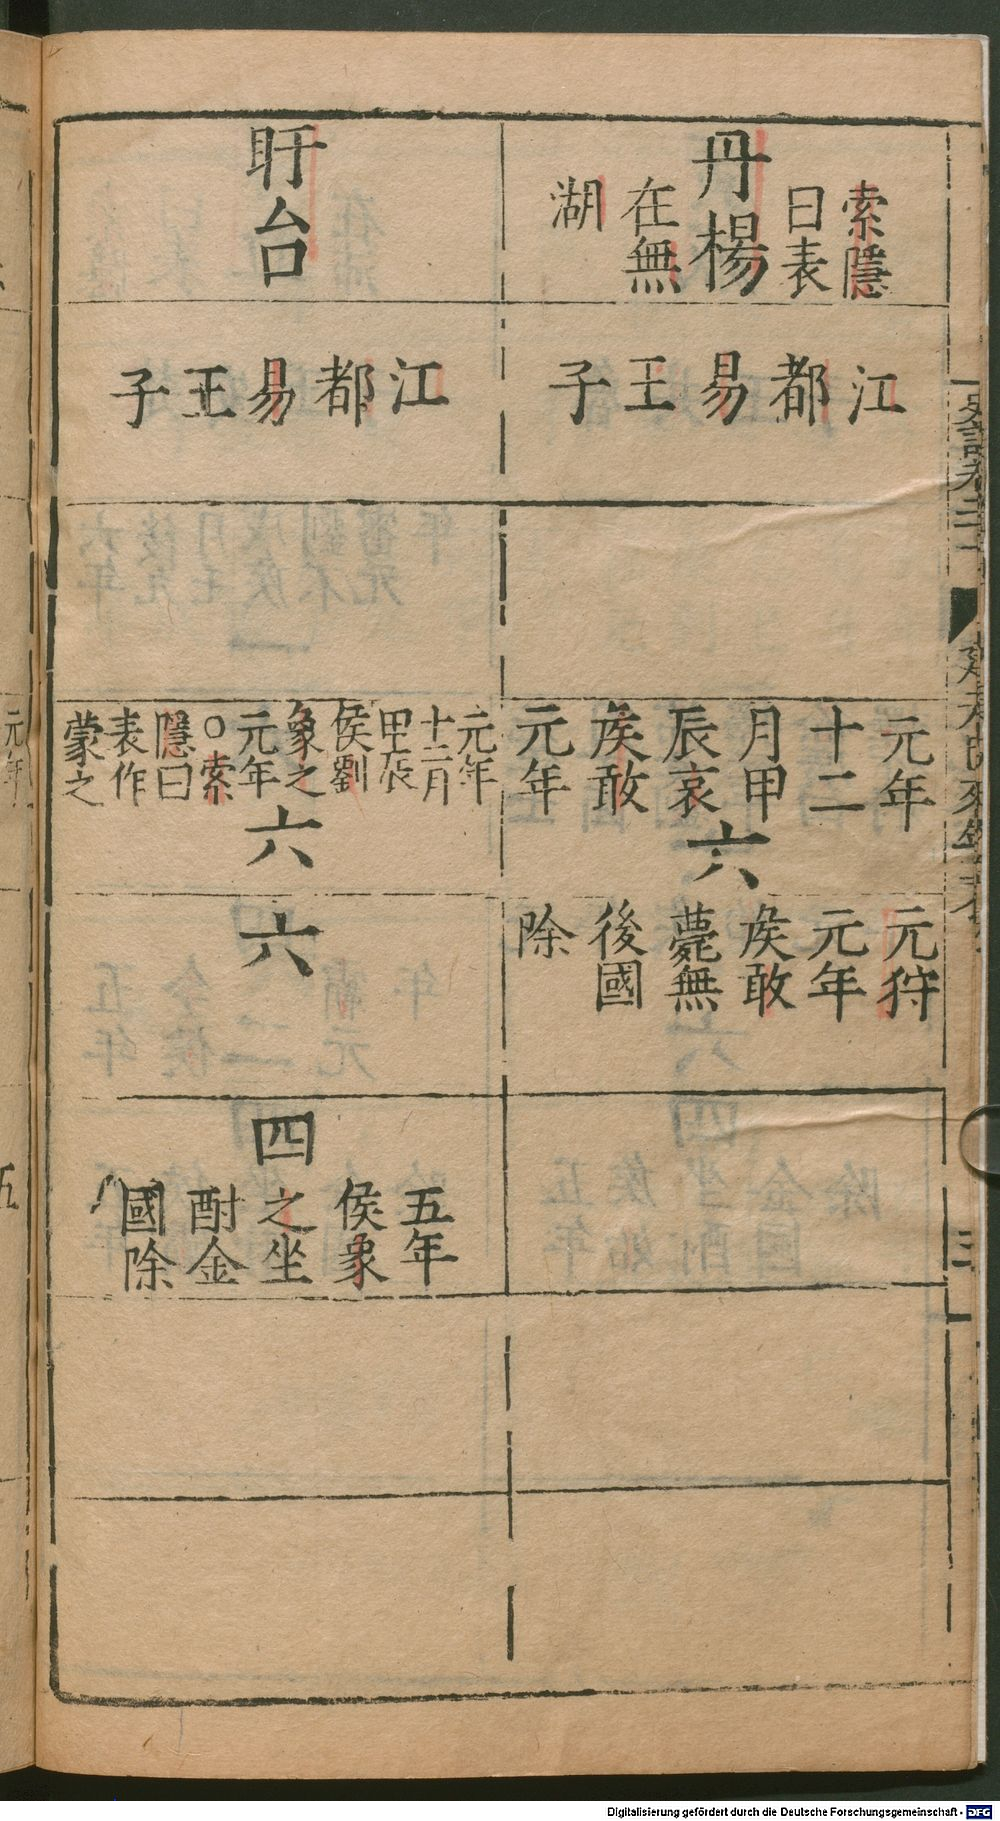 丹楊
索隱
曰表
在無
湖
江都易王子
元年
十二
月甲
辰哀
侯敢
元年
六
元狩
元年
侯敢
薨無
後國
除
盱台
江都易王子
元年
十二月
甲辰
侯劉
象之
元年
○索
隱曰
表作
蒙之
六
六
四
五年
侯象
之坐
酎金
國除
元年
五
Digitalisierung gefördert durch die Deutsche Forschungsgemeinschaft - DFG